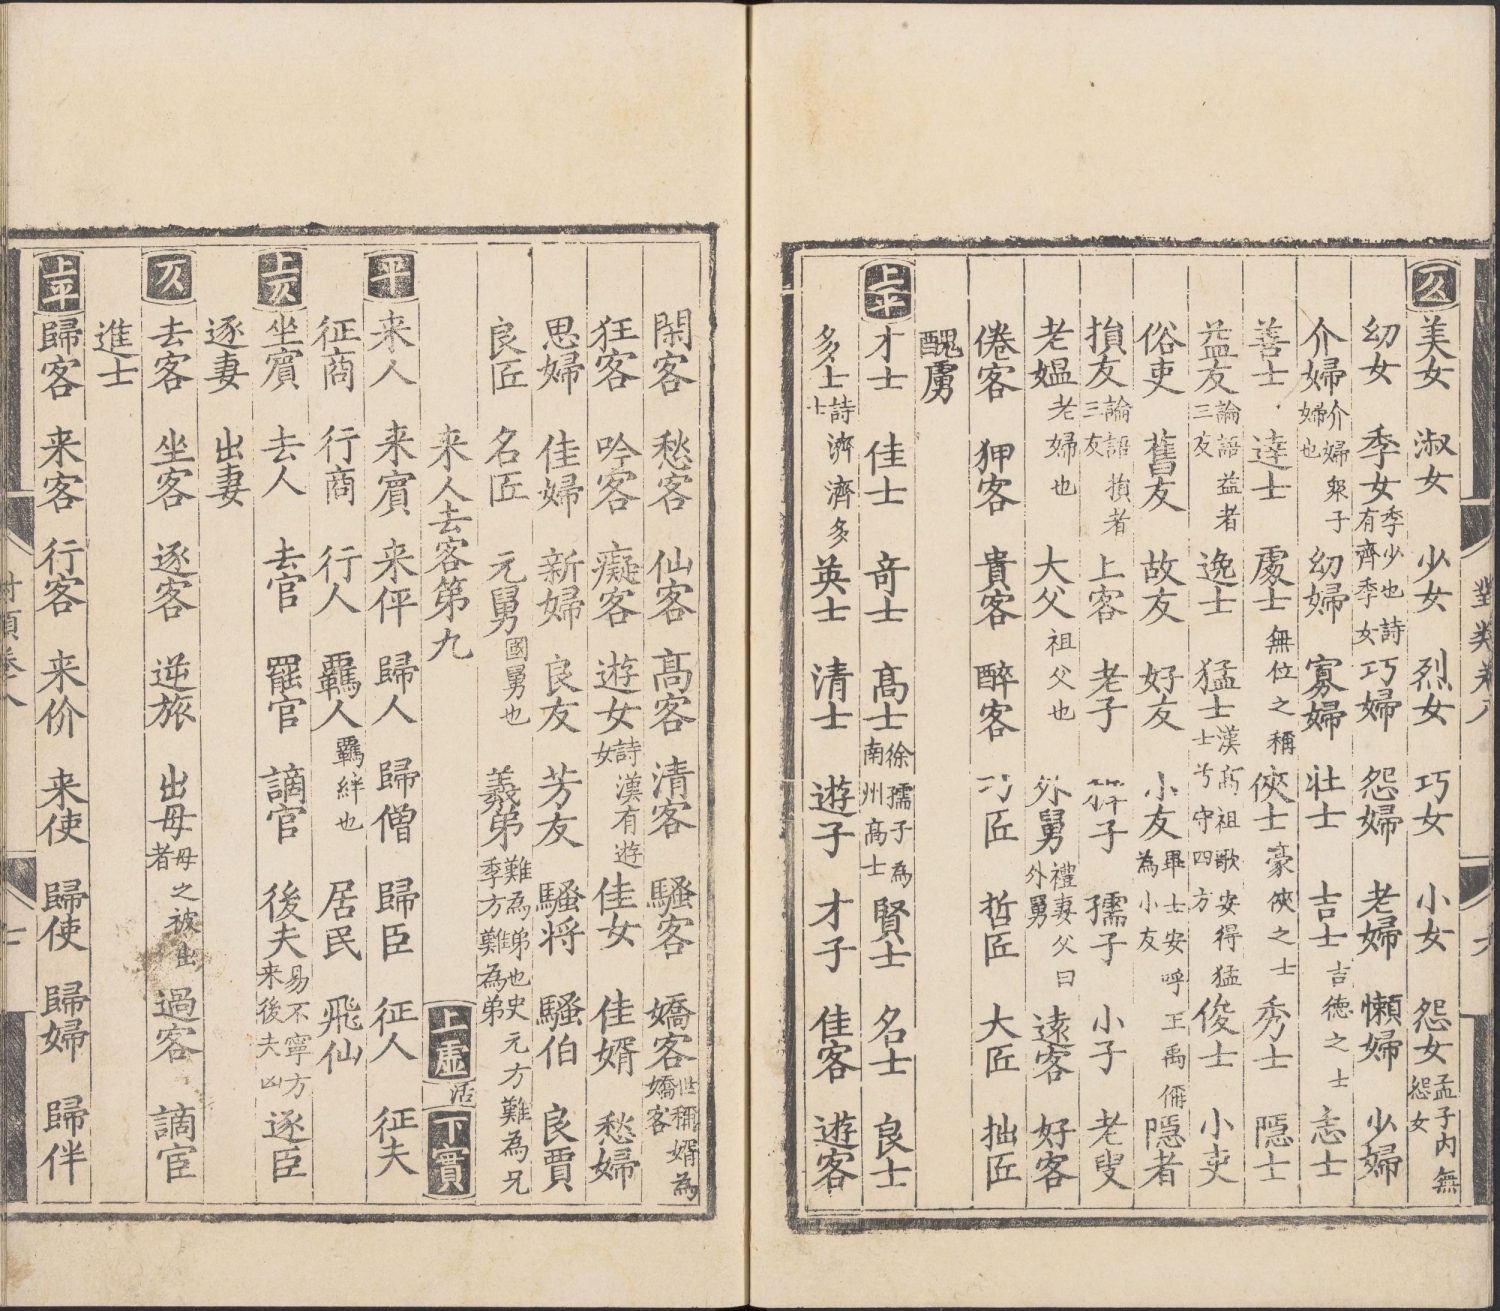 仄 美女 淑女 少女 烈女 巧女 小女 怨女 孟子内無怨女
幼女 季女 季少也詩有齊季女 巧婦 怨婦 老婦 懶婦 少婦
介婦 介婦衆子婦也 幼婦 寡婦 壯士 吉士 吉德之士 志士
善士 達士 處士 無位之稱 俠士 豪俠之士 秀士 隱士
益友 論語益者三友 逸士 猛士 漢高祖歌安得猛士兮守四方 俊士 小吏
俗吏 舊友 故友 好友 小友 畢士安呼王禹偁為小友 隱者
損友 論語損者三友 上客 老子 子 孺子 小子 老叟
老媼 老婦也 大父 祖父也 外舅 禮妻父曰外舅 遠客 好客
倦客 狎客 貴客 醉客 巧匠 哲匠 大匠 拙匠
醜虜
上平 才士 佳士 奇士 高士 徐孺子為南州高士 賢士 名士 良士
多士 詩濟濟多士 英士 清士 遊子 才子 佳客 遊客
對類卷八 六
閑客 愁客 仙客 高客 清客 騷客 嬌客 世稱婿為嬌客
狂客 吟客 癡客 遊女 詩漢有遊女 佳女 佳婿 愁婦
思婦 佳婦 新婦 良友 芳友 騷将 騷伯 良賈
良匠 名匠 元舅 國舅也 義弟 難為弟也史元方難為兄季方難為弟
来人去客第九 上虚活 下實
平 来人 来賓 来伻 歸人 歸僧 歸臣 征人 征夫
征商 行商 行人 羇人 羇絆也 居民 飛仙
上仄 坐賓 去人 去官 罷官 謫官 後夫 易不寧方来後夫凶 逐臣
逐妻 出妻
仄 去客 坐客 逐客 逆旅 出母 母之被出者 過客 謫宦
進士
上平 歸客 来客 行客 来价 来使 歸使 歸婦 歸伴
對類卷八 七